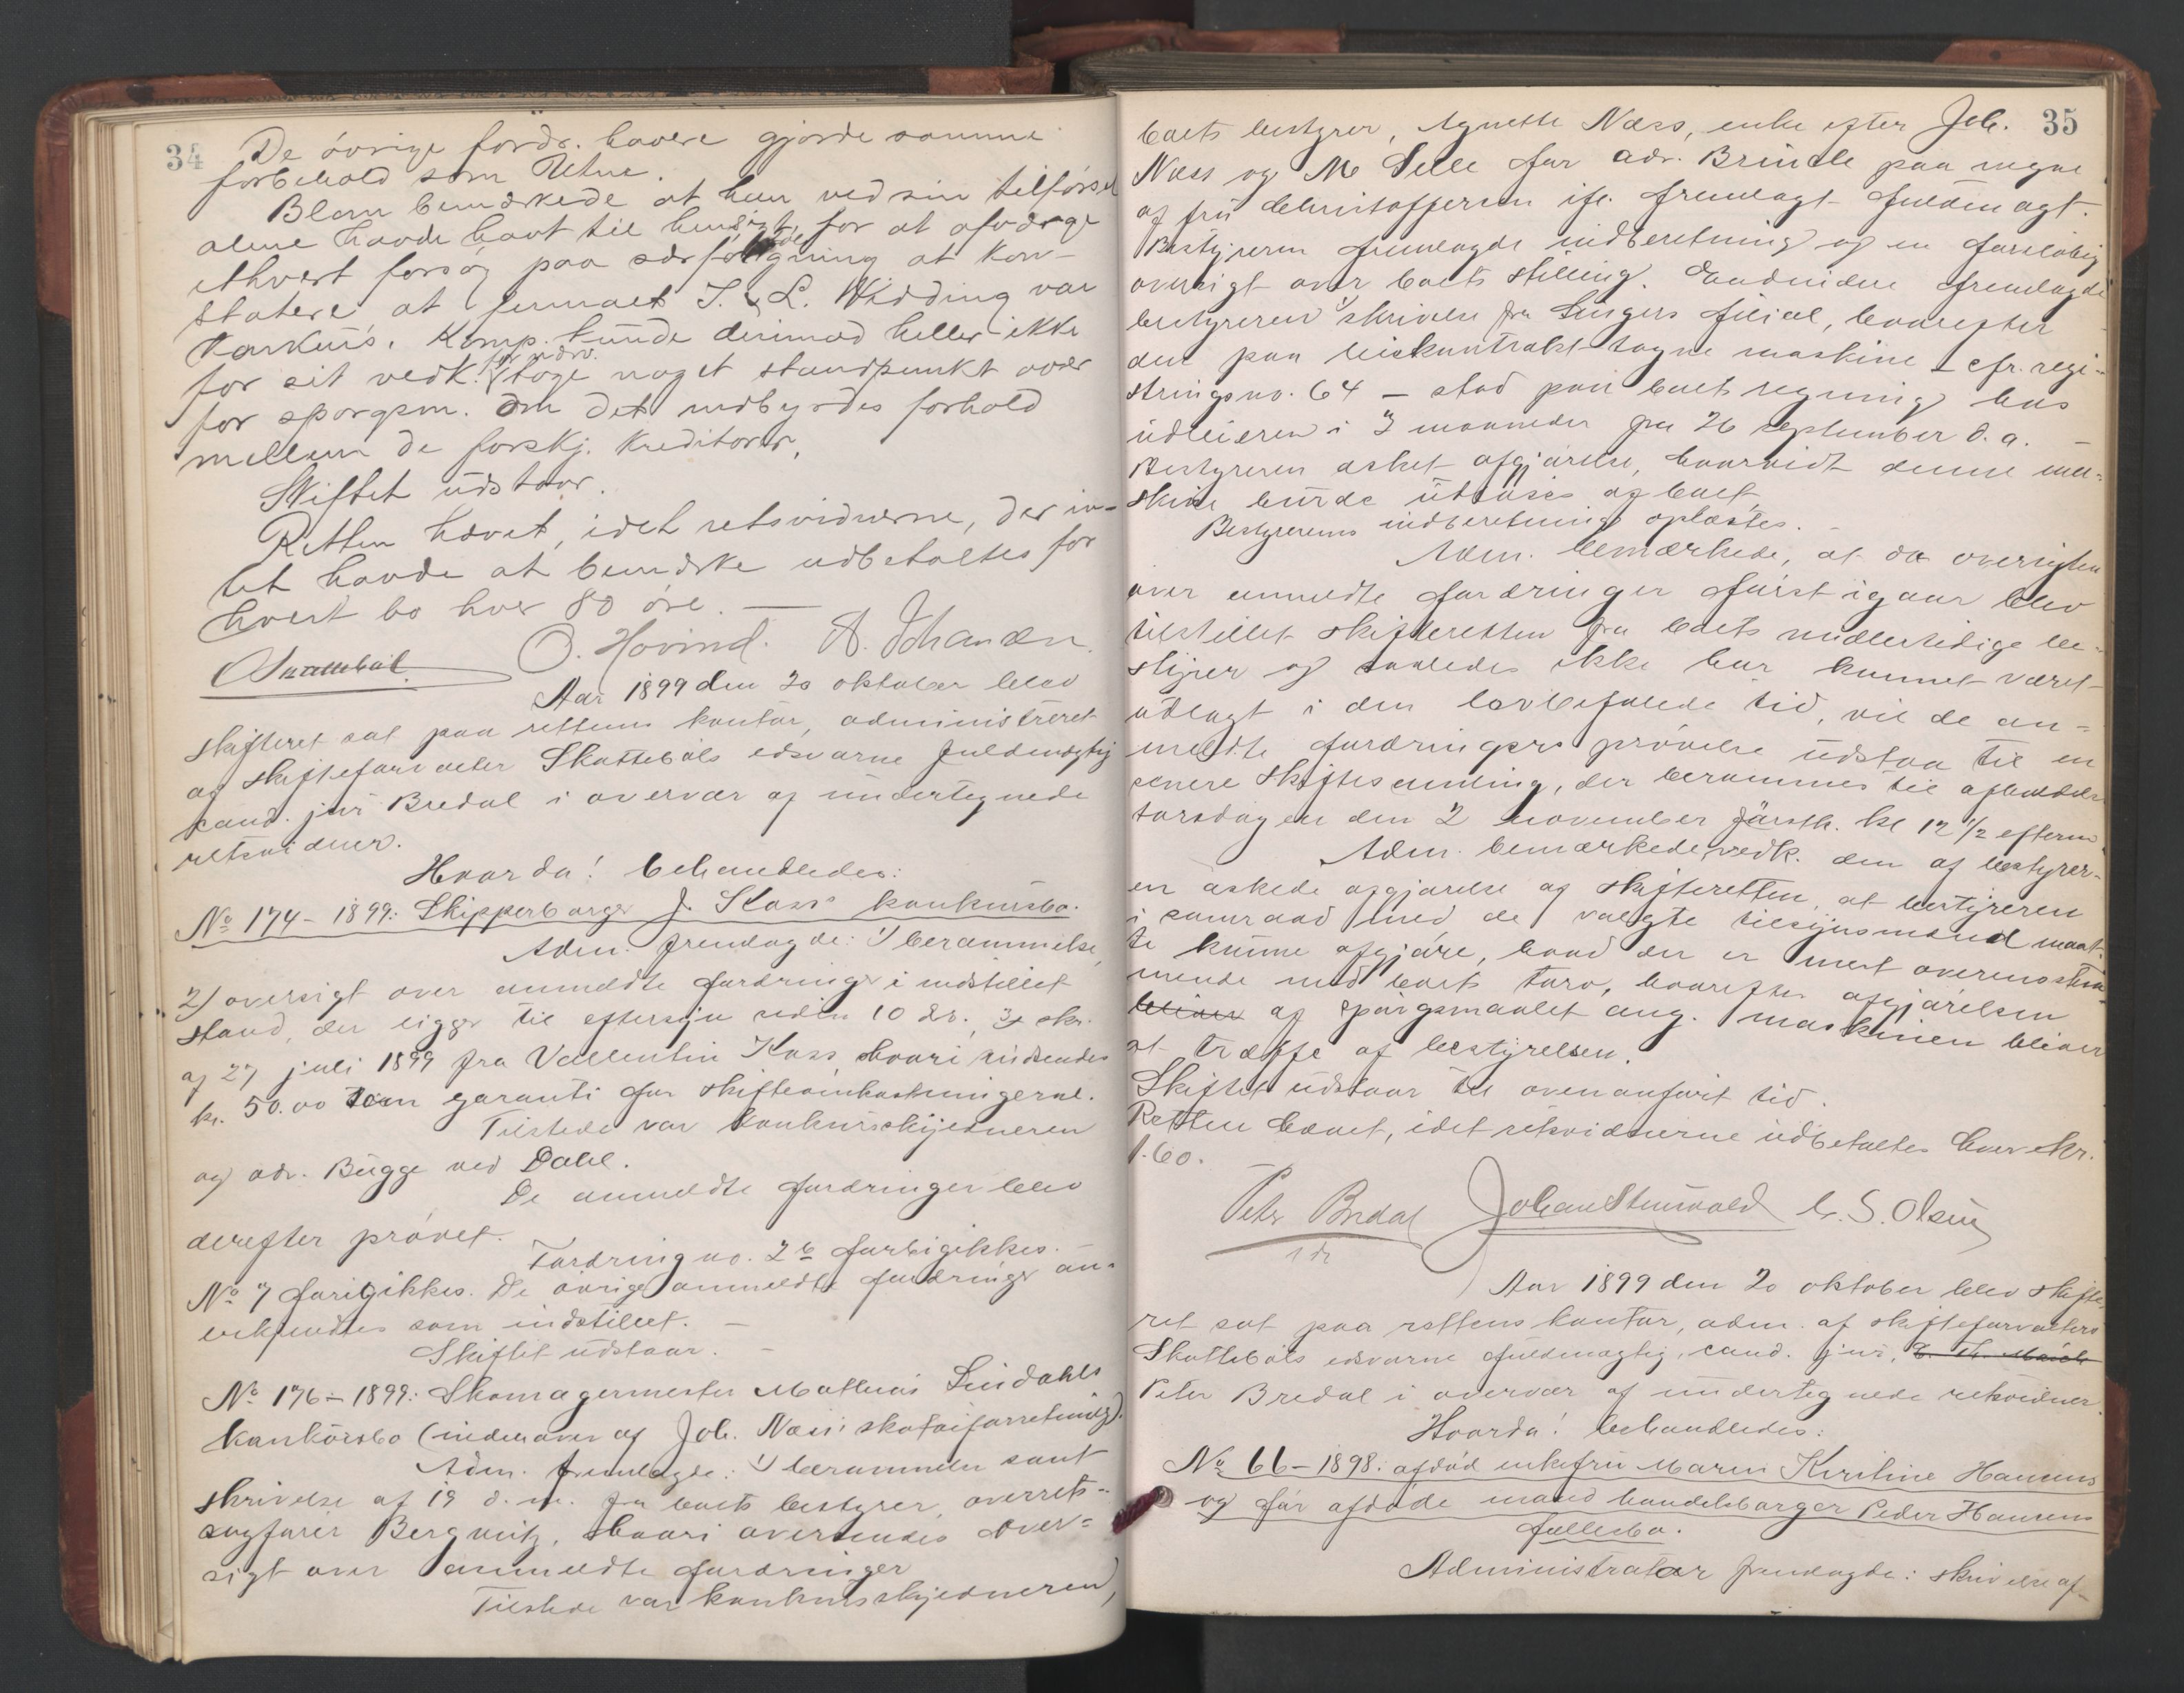 34
De övrige fordr. havere gjorde samme
forbehold som Utne.
Blom bemærkede at han ved sin tilförsel
alene havde havt til hensigt for at afværge
ethvert forsög paa særforfölgning at kon-
statere at firmaet J. & L. Widding var
konkurs. Komp. kunde derimod heller ikke
for sit vedk. tage noget standpunkt over
for spörgsm. om det indbyrdes forhold
mellem de forskj. kreditorer.
Skiftet udstaar.
Retten hævet, idet retsvidnerne, der in-
tet havde at bemærke udbetaltes for
hvert bo hver 80 öre. —
O. Hovind. A. Johansen.
Skattebøl
Aar 1899 den 20 oktober blev
skifteret sat paa rettens kontor, administreret
af skifteforvalter Skattebøls edsvorne fuldmægtig
cand. jur Bredal i overvær af undertegnede
retsvidner.
Hvorda! behandledes:
No 174 - 1899: Skipperborger J. Kass' konkursbo.
Adm. fremlagde: 1) berammelse,
2) oversigt over anmeldte fordringer i indstillet
stand, der ligger til eftersyn siden 10 ds., 3) skr.
af 27 juli 1899 fra Vallentin Kass, hvori indsendes
kr. 50.00 som garanti for skifteomkostningerne.
Tilstede var konkursskyldneren
og adv. Bugge ved Dahl.
De anmeldte fordringer blev
derefter prövet.
Fordring no. 2b forbigikkes.
No 7 forbigikkes. De övrige anmeldte fordringer an-
erkjendtes som indstillet. —
Skiftet udstaar. —
No 176 - 1899: Skomagermester Mathias Lindahls
konkursbo (indehaver af Joh. Næss' skotöiforretning).
Adm. fremlagde: 1) berammelse samt
skrivelse af 19 d. m. fra boets bestyrer, overrets-
sagförer Bergwitz, hvori oversendes over-
sigt over anmeldte fordringer
Tilstede var konkursskyldneren,
35
boets bestyrer, Agnethe Næss, enke efter Joh.
Næss og M Selle for adv. Brinch paa vegne
af fru Christoffersen ifl. fremlagt fuldmagt.
Bestyreren fremlagde indberetning og en foreløbig
oversigt over boets stilling. Endvidere fremlagde
bestyreren 1) skrivelse fra Singers filial, hvorefter
den paa leiekontrakt tagne maskine - cfr. regi-
streringsno. 64 - stod paa boets regning hos
udleieren i 3 maaneder fra 26 september d. a. —
Bestyreren æsket afgjörelse, hvorvidt denne ma-
skine burde udlöses af boet.
Bestyrerens indberetning oplæstes. —
Adm. bemærkede, at da oversigten
over anmeldte fordringer först igaar blev
tilstillet skifteretten fra boets midlertidige be-
styrer og saaledes ikke har kunnet været
udlagt i den lovbefalede tid, vil de an-
meldte fordringers prövelse udstaa til en
senere skiftesamling, der berammes til afholdelse
torsdagen den 2 november förstk. kl 12 1/2 efterm.
Adm. bemærkede vedk. den af bestyrer-
en æskede afgjörelse af skifteretten, at bestyreren
i samraad med de valgte tilsynsmænd maat-
te kunne afgjöre, hvad der er mest overensstem-
mende med boets tarv, hvorefter afgjörelsen
bliver af spörgsmaalet ang. maskinen bliver
at træffe af bestyrelsen.
Skiftet udstaar til ovenanfört tid.
Retten hævet, idet retsvidnerne udbetaltes hver kr.
1.60.
Peter Bredal Johan Stenvold C. S. Olsen
Aar 1899 den 20 oktober blev skifte-
ret sat paa rettens kontor, adm. af skifteforvalters
Skattebøls edsvorne fuldmægtig, cand. jur,
Peter Bredal i overvær af undertegnede retsvidner.
Hvorda! behandledes:
No 66 - 1898: afdöd enkefru Maren Kirstine Hansens
og för afdöde mand handelsborger Peder Hansens
fællesbo.
Administrator fremlagde: skrivelse af